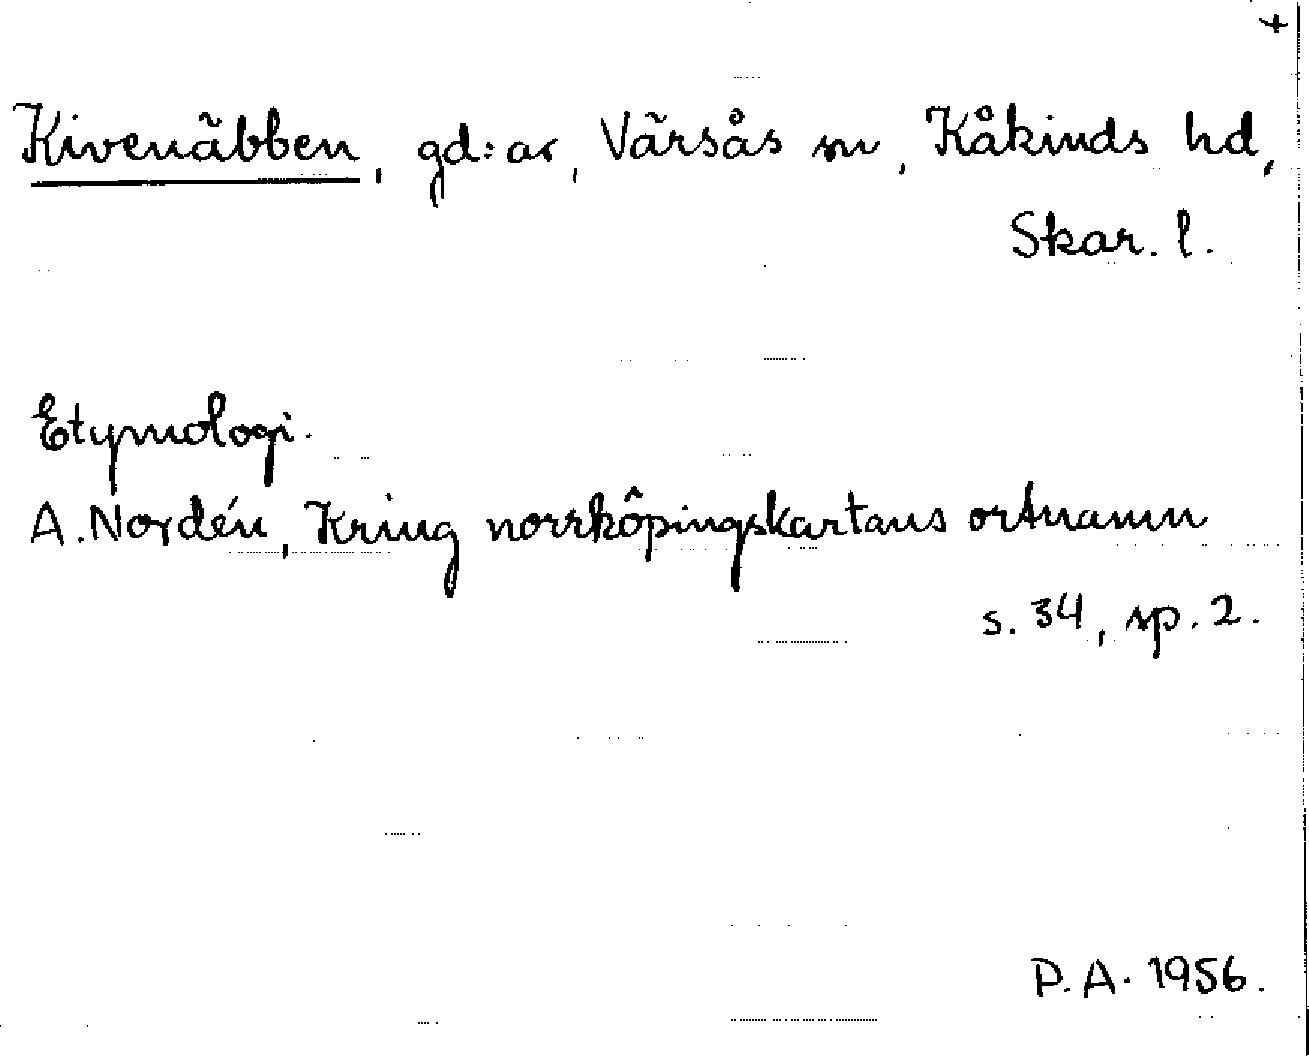 +
Kivenäbben, gd:ar, Värsås sn, Kåkinds hd,
Skar. l.
Etymologi.
A. Nordén, Kring norrköpingskartans ortnamn
s. 34, sp. 2.
P. A. 1956.